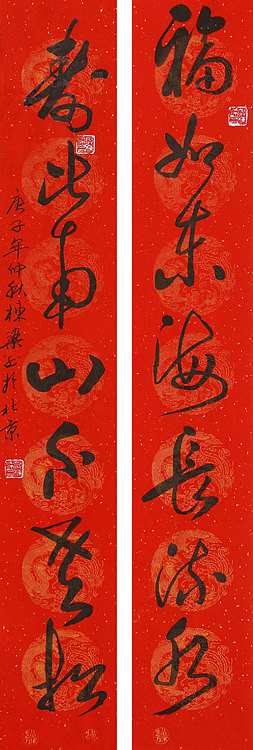 福如东海长流水
寿比南山不老松
庚子年仲秋栋梁书于北京